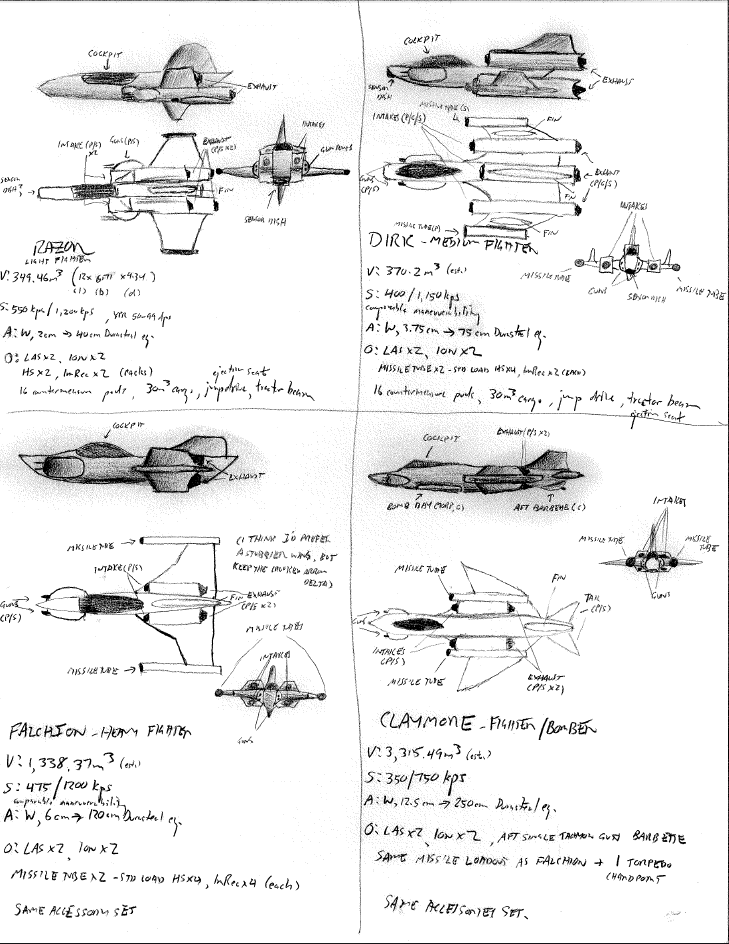 COCKPIT
EXHAUST
INTAKE (P/S) X2
GUNS (P/S)
EXHAUST (P/S X2)
SENSOR DISH?
FIN
INTAKES
GUN PORTS
SENSOR DISH
RAZOR
LIGHT FIGHTER
V: 349.46m³
S: 550 kps/1,200 kps,
A: W, 2cm → 40cm Durasteel eq.
O: LAS X2, ION X2
HS X2, ImRec X2 (each)
ejection seat
16 countermeasure pods, 30m³ cargo, jump drive, tractor beam
COCKPIT
SENSOR DISH
EXHAUST
MISSILE TUBE (S)
INTAKES (P/C/S)
FIN
GUNS (P/S)
EXHAUST (P/C/S)
FIN
MISSILE TUBE (P)
FIN
INTAKES
MISSILE TUBE
GUNS
SENSOR DISH
MISSILE TUBE
DIRK - MEDIUM FIGHTER
V: 370.2 m³ (est.)
S: 400/1,150 kps
comparable maneuverability
A: W, 3.75cm → 75cm Durasteel eq.
O: LAS X2, ION X2
MISSILE TUBE X2 - STD LOAD HS X4, ImRec X2 (EACH)
16 countermeasure pods, 30m³ cargo, jump drive, tractor beam
ejection seat
COCKPIT
EXHAUST
MISSILE TUBE
(I THINK I'D PREFER
A STUBBIER WING, BUT
KEEP THE
DELTA)
INTAKE (P/S)
GUNS (P/S)
FIN
EXHAUST (P/S X2)
MISSILE TUBE
MISSILE TUBES
INTAKES
GUNS
FALCHION - HEAVY FIGHTER
V: 1,338.37m³ (est.)
S: 475/1200 kps
comparable maneuverability
A: W, 6cm → 120cm Durasteel eq.
O: LAS X2, ION X2
MISSILE TUBE X2 - STD LOAD HS X4, ImRec X4 (each)
SAME ACCESSORY SET
COCKPIT
EXHAUST (P/S X2)
BOMB BAY
AFT BARBETTE (C)
INTAKES
MISSILE TUBE
MISSILE TUBE
GUNS
MISSILE TUBE
FIN
TAIL (P/S)
GUNS
INTAKES (P/S)
MISSILE TUBE
EXHAUST (P/S X2)
CLAYMORE - FIGHTER/BOMBER
V: 3,315.49m³ (est.)
S: 350/750 kps
A: W, 12.5cm → 250cm Durasteel eq.
O: LAS X2, ION X2, AFT SINGLE TACHYON GUN BARBETTE
SAME MISSILE LOADOUT AS FALCHION + 1 TORPEDO
HARDPOINT
SAME ACCESSORIES SET.